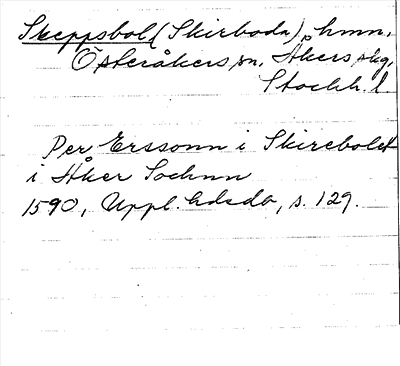 Skeppsbol (Skirboda), hmn,
Österåkers sn, Åkers skg,
Stockh. l.
Per Erssonn i Skirebolet
i Åker Sochnn
1590, Uppl. ldsdo, s. 129.